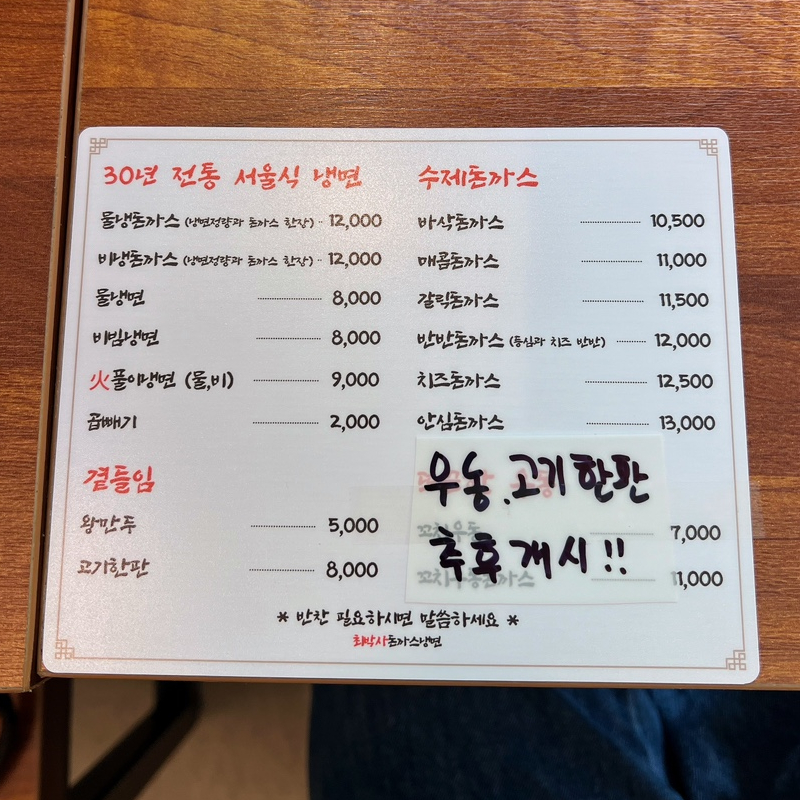 30년 전통 서울식 냉면
물냉돈까스 (냉면정량과 돈까스 한장) 12,000
비냉돈까스 (냉면정량과 돈까스 한장) 12,000
물냉면 8,000
비빔냉면 8,000
火풀이냉면 (물,비) 9,000
곱빼기 2,000
곁들임
왕만두 5,000
고기한판 8,000
수제돈까스
바삭돈까스 10,500
매콤돈까스 11,000
갈릭돈까스 11,500
반반돈까스 (등심과 치즈 반반) 12,000
치즈돈까스 12,500
안심돈까스 13,000
우동.고기한판
추후개시!!
꼬치우동 7,000
11,000
* 반찬 필요하시면 말씀하세요 *
최박사돈까스냉면